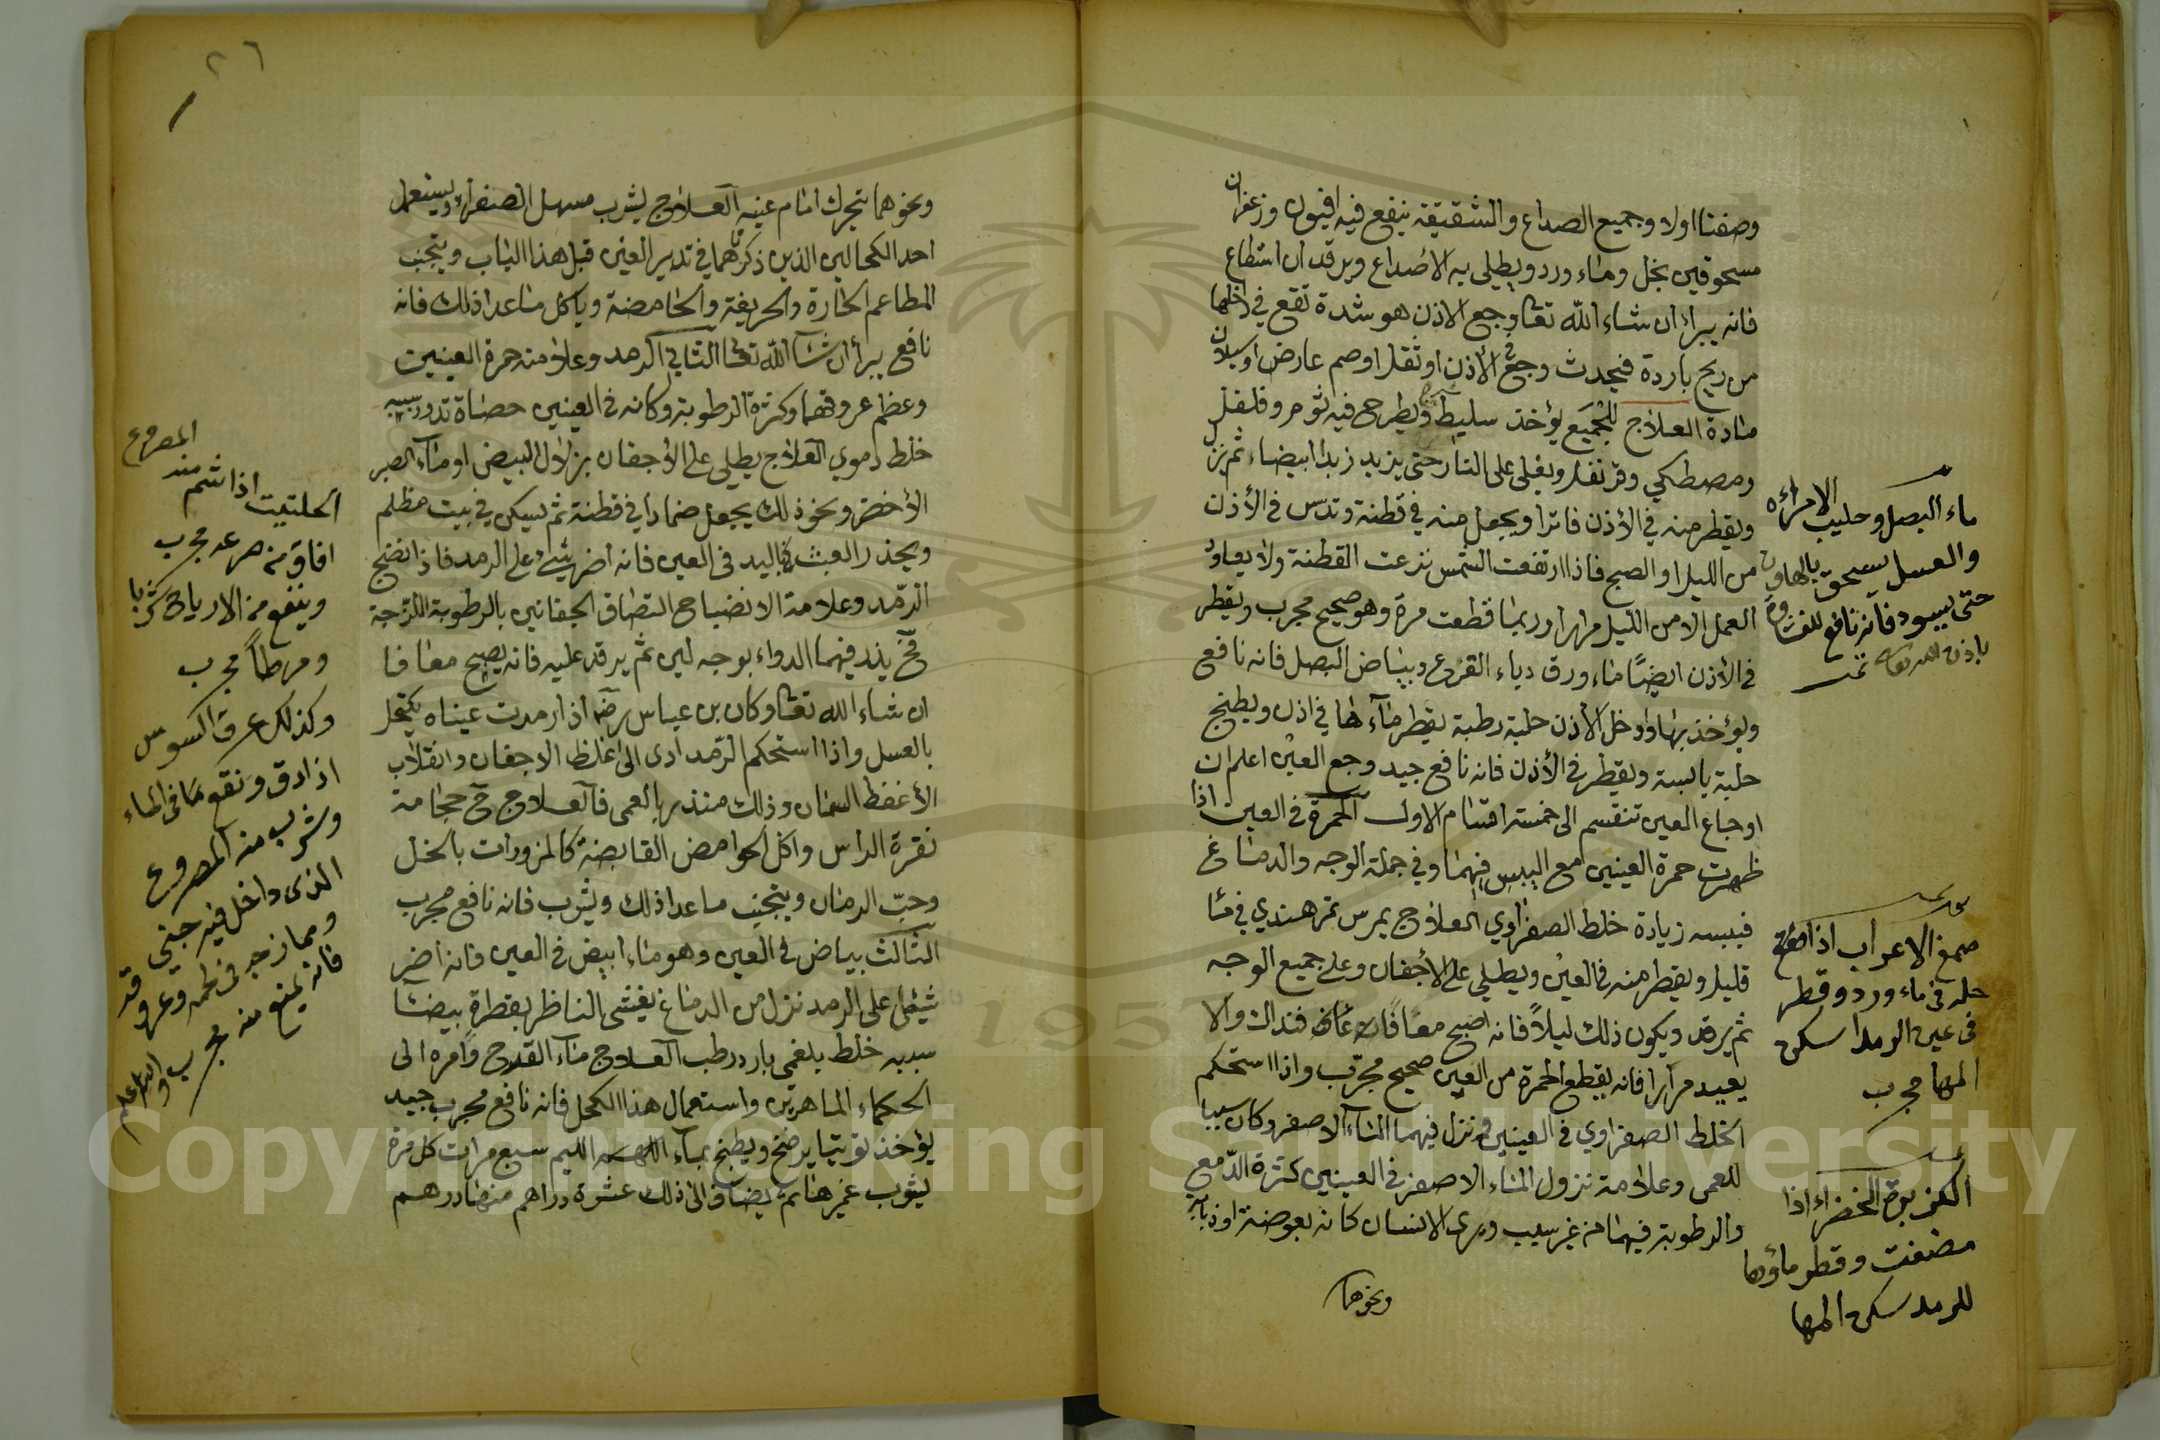 وصفنا اولا وجميع الصداع والشقيقة ينفع فيه افيون وزعفران
مسحوقين بخل وماء ورد ويطلى به الاصداع ويرقد ان استطاع
فانه يبرأ ان شاء الله تعالى وجع الاذن هو شدة تقع في داخلها
من ريح باردة فيحدث وجع في الأذن او ثقل او صم عارض او سيلان
مادة العلاج للجميع يؤخذ سليط ويطرح فيه ثوم وفلفل
ومصطكي وقرنفل ويغلى على النار حتى يزبد زبدا ابيضاء ثم ينزل
ويقطر منه في الأذن فاترا ويجعل منه في قطنة وتدس في الأذن
من الليل او الصبح فاذا ارتفعت الشمس نزعت القطنة ولا يعاود
العمل الا من الليل مرارا وربما قطعت مرة وهو صحيح مجرب ويقطر
في الأذن ايضًا ماء ورق دباء القرع وبياض البصل فانه نافع
ويؤخذ بهاواوخل الأذن حلبة رطبة يقطر ماءها في اذن ويطبخ
حلبة يابسة ويقطر في الأذن فانه نافع جيد وجع العين اعلم ان
اوجاع العين تنقسم الى خمسة اقسام الاول الحمرة في العين اذا
ظهرت حمرة العينين مع اليبس فيهما وفي جملة الوجه والدماغ
فسببه زيادة خلط الصفراوي العلاج يمرس تمر هندي في ماء
قليل ويقطر منه في العين ويطلي على الأجفان وعلى جميع الوجه
ثم يرقد ويكون ذلك ليلاً فانه اصبح معافا فذاك والا
يعيد مرارا فانه يقطع الحمرة من العين صحيح مجرب واذا استحكم
الخلط الصفراوي في العينين نزل فيهما الماء الاصفر وكان سببا
للعمى وعلامة نزول الماء الاصفر في العينين كثرة الدمع
والرطوبة فيهما من غير سبب ويرى الانسان كانه بعوضة او ذبابة
ونحوهما
ماء البصل وحليب الامرأة
والعسل يسحق بالهاون
حتى يسود فانه نافع للغشاوة
بإذن الله تعالى تمت
صمغ الاعراب اذا
حله في ماء ورد وقطر
في عين الرمد اسكن
المها مجرب
الكزبرة الخضراء اذا
مضغت وقطر ماؤها
للرمد سكن المها
٢٦
ونحوهما يتحرك امام عينه العلاج يشرب مسهل الصفراء ويستعمل
احد الكحالين الذين ذكرناهما في تدبير العين قبل هذا الباب ويتجنب
المطاعم الحارة والحريفة والحامضة وياكل ماعدا ذلك فانه
نافع يبرأ ان شاء الله تعالى الثاني الرمد وعلامته حمرة العينين
وعظم عروقهما وكثرة الرطوبة وكانه في العينين حصاة تدور سببه
خلط دموي العلاج يطلي على الأجفان بزلال البيض او ماء الصبر
الأخضر ونحو ذلك يجعل ضمادا في قطنة ثم يسكن في بيت مظلم
ويحذر العبث باليد في العين فانه اضر شيء على الرمد فاذا نضج
الرمد وعلامة الانضياح التصاق الجفانين بالرطوبة اللزجة
فح يذر فيهما الدواء بوجه لين ثم يرقد عليه فانه يصبح معافا
ان شاء الله تعالى وكان بن عباس رضه اذا رمدت عيناه يكتحل
بالعسل واذا استحكم الرمد ادى الى اغلظ الاجفان وانقلاب
الأغفط السمان وذلك منذر بالعمى فالعلاج ح حجامة
نقرة الراس واكل الحوامض القابضة كالمزورات بالخل
وحب الرمان ويتجنب ماعدا ذلك ويشرب فانه نافع مجرب
الثالث بياض في العين وهو ماء ابيض في العين فانه اضر
شيئى على الرمد نزل من الدماغ يغشى الناظر بقطرة بيضاء
سببه خلط بلغمي بارد رطب العلاج ماء القدح وامره الى
الحكماء الماهرين واستعمال هذا الكحل فانه نافع مجرب جيد
يؤخذ توتيا يرضخ ويطبخ بماء الليم سبع مرات كل مرة
يشرب غمرها ثم يضاف الى ذلك عشرة دراهم منها درهم
المصروع
الحلتيت اذا شم منه
افاق من صرعه مجرب
وينفع من الارياح شربا
ومرطا مجرب
وكذلك عرق السوس
اذا دق ونقع في الماء
وشرب منه المصروع
الذي داخل فيه جني
ومما زجر في لحمه وعروقه
فانه يمنع منه مجرب والله اعلم
Copyright © King Saud University
1957